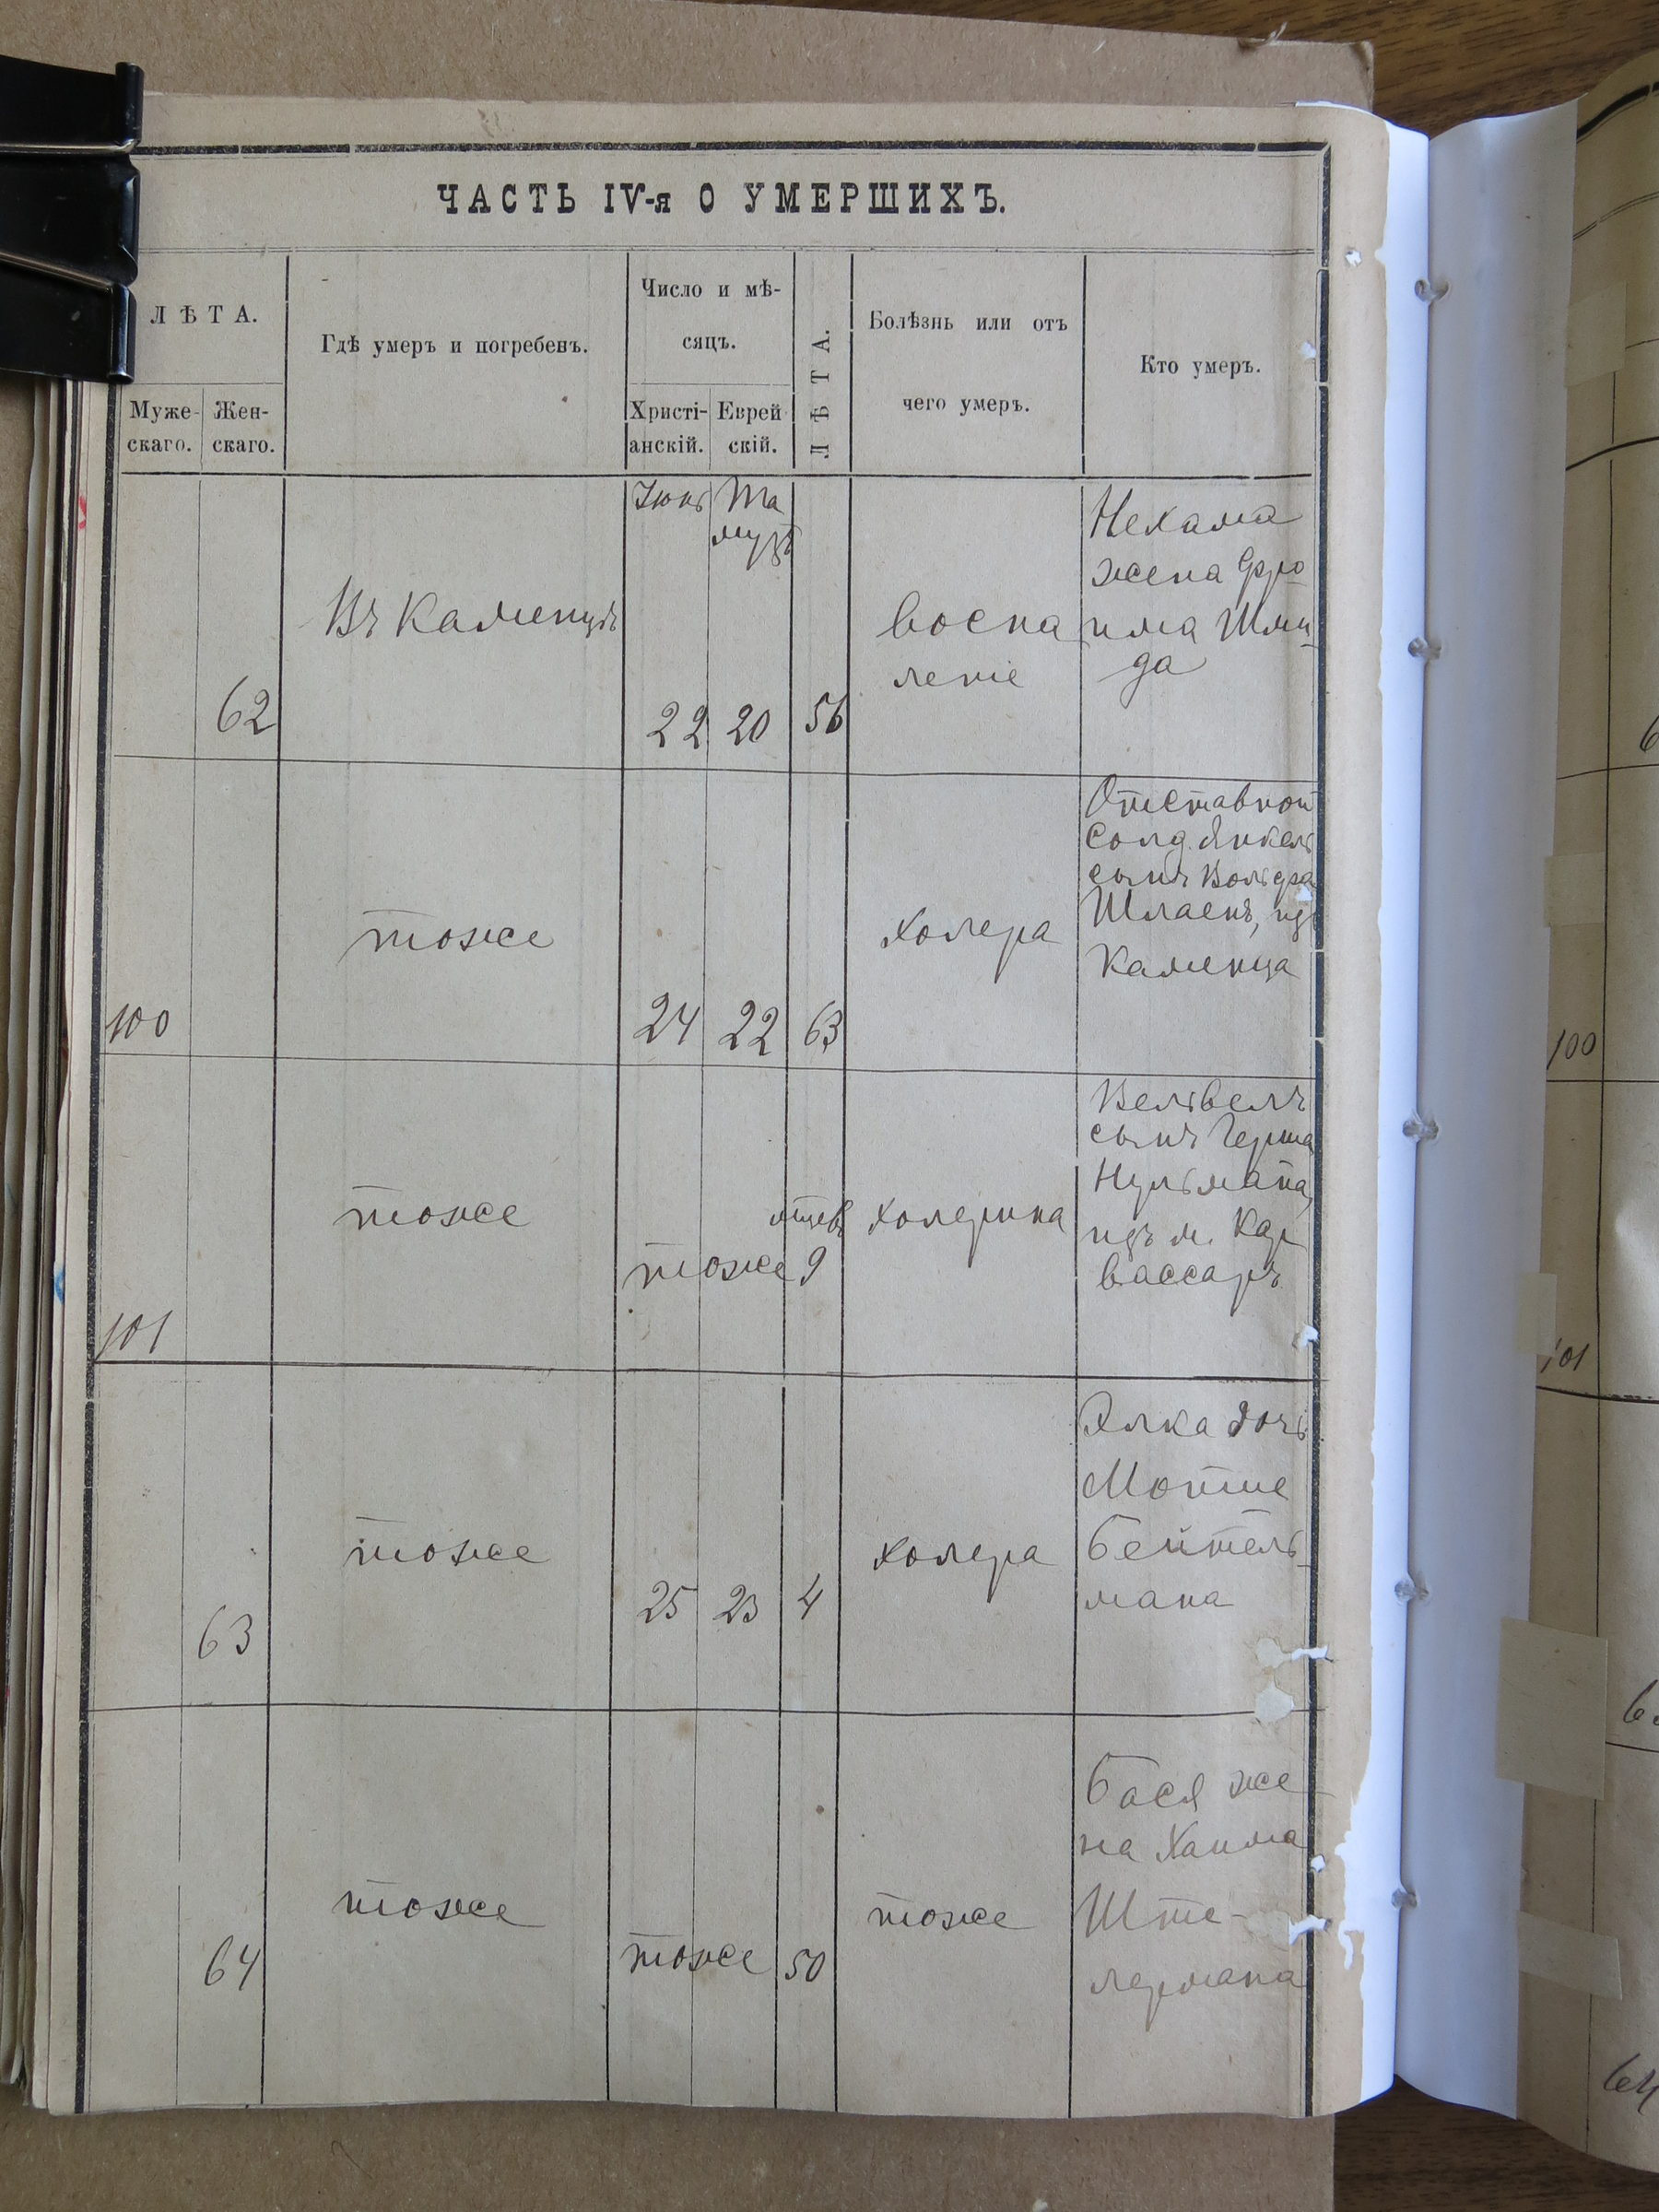 ЧАСТЬ IV-я О УМЕРШИХЪ.
ЛѢТА.
Муже-
скаго.
Жен-
скаго.
Гдѣ умеръ и погребенъ.
Число и мѣ-
сяцъ.
Христі-
анскій.
Еврей
скій.
ЛѢТА.
Болѣзнь или отъ
чего умеръ.
Кто умеръ.
62
Въ Каменцѣ
Іюнь
22
Та
музъ
20
56
воспа
леніе
Нехама
жена Фро
има Шми
да
100
тоже
24
22
63
холера
Отставной
солд. Янкель
сынъ Вольфа
Шлаенъ, изъ
Каменца
101
тоже
тоже
9
холерина
Вельвель
сынъ Герша
Нульмана,
изъ м. Кар
вассаръ
63
тоже
25
23
4
холера
Элка дочь
Мотте
Бейтель-
мана
64
тоже
тоже
50
тоже
Бася же
на Хаима
Ште-
лермана
100
101
64